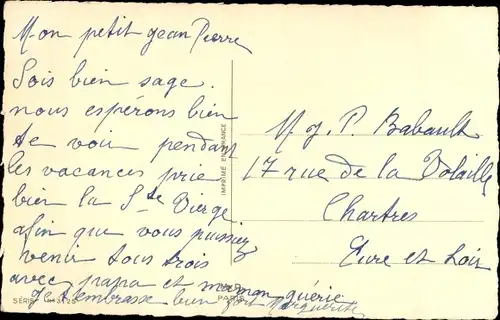 Mon petit Jean Pierre
Sois bien sage.
nous espérons bien
te voir pendant
les vacances prie
bien la Ste Vierge
afin que vous puissiez
venir tous trois
avec papa et maman guérie
Je t'embrasse bien fort Marguerite
M J. P. Babault
17 rue de la Volaille
Chartres
Eure et Loir
IMPRIMÉ EN FRANCE
SÉRIE
PARIS